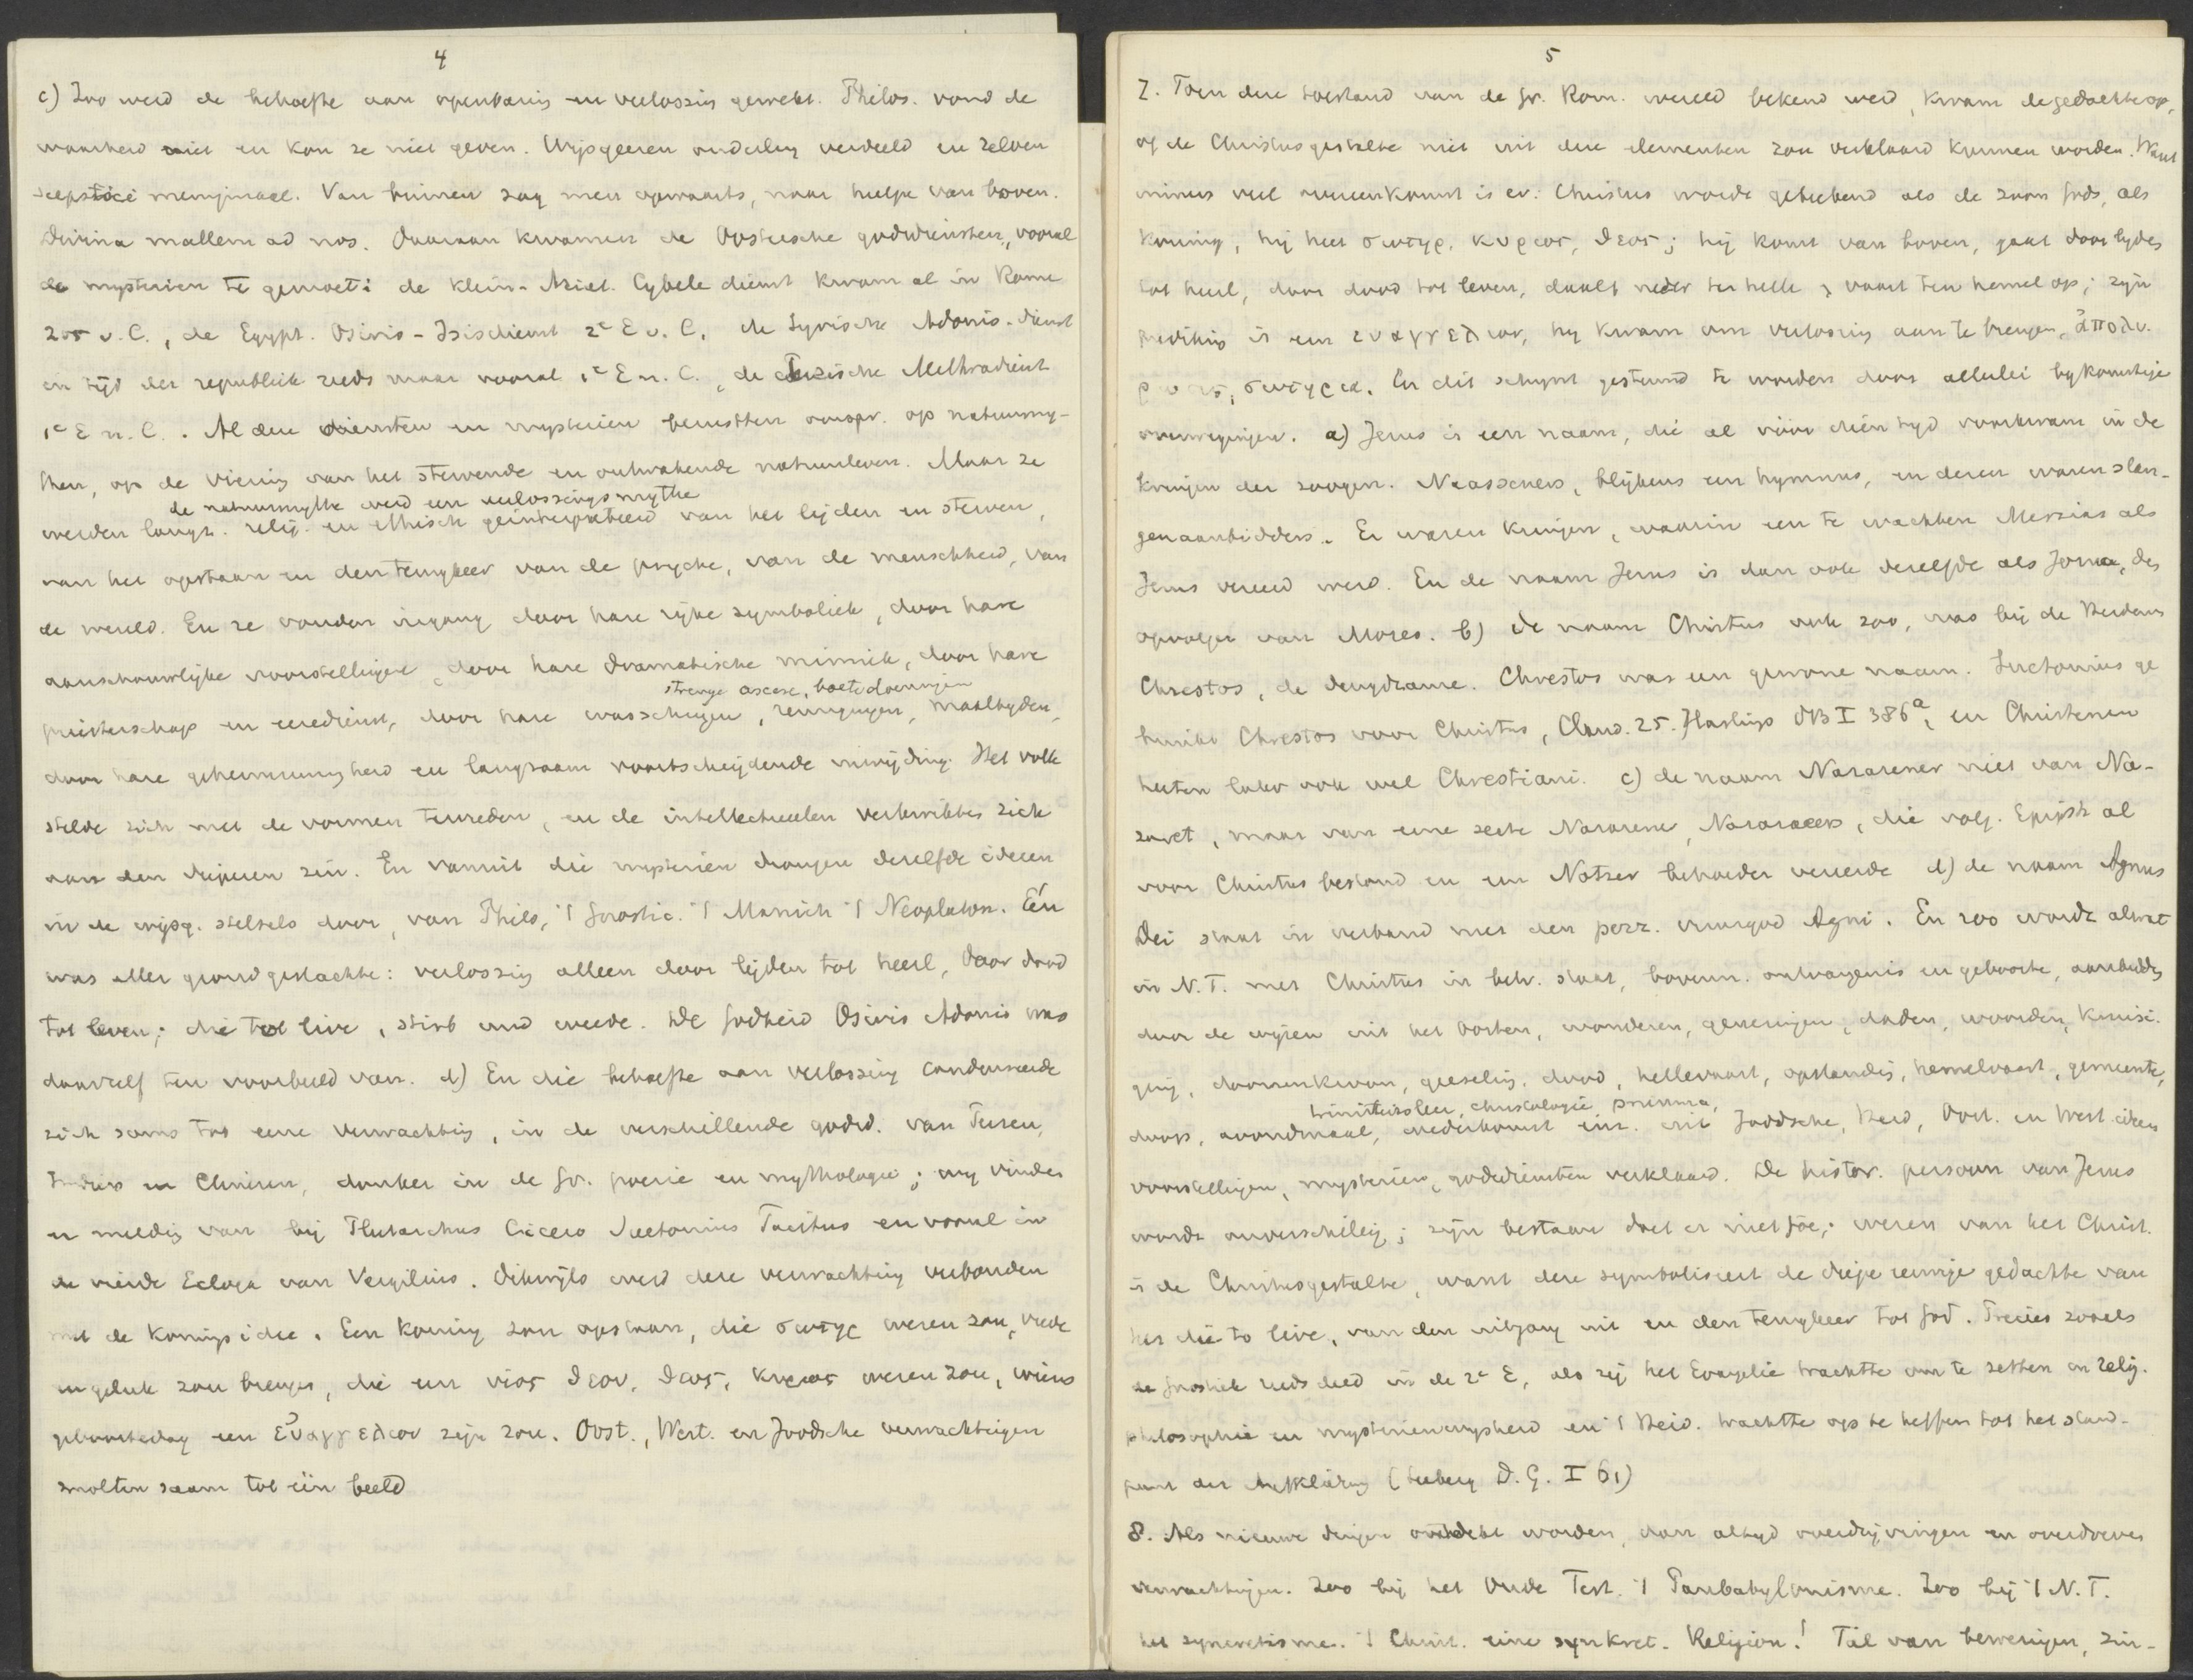 4
c) Zoo werd de behoefte aan openbaring en verlossing gewekt. Philos. vond de
waarheid niet en kon ze niet geven. Wijsgeeren onderling verdeeld en zelven
sceptici menigmaal. Van binnen zag men opwaarts, naar hulpe van boven.
Divina mallem ad nos. Daaraan kwamen de Oostersche godsdiensten, vooral
de mysterien te gemoet: de Klein-Aziat. Cybele dienst kwam al in Rome
205 v. C., de Egypt. Osiris-Isisdienst 2e E v. C. de Syrische Adonis-dienst
in tijd der republiek reeds maar vooral 1e E n. C., de Perzische Mithradienst
1e E n. C.. Al deze diensten en mysterien berustten oorspr. op natuurmy-
then, op de viering van het stervende en ontwakende natuurleven. Maar ze
de natuurmythe werd een verlossingsmythe
werden langz. relig. en ethisch geinterpreteerd van het lijden en sterven,
van het opstaan en den terugkeer van de psyche, van de menschheid, van
de wereld. En ze vonden ingang door hare rijke symboliek, door hare
aanschouwelijke voorstellingen, door hare dramatische mimiek, door hare
strenge ascese, boetedoeningen
priesterschap en eeredienst, door hare wasschingen, reinigingen, maaltijden,
door hare geheimzinnigheid en langzaam voortschrijdende inwijding. Het volk
stelde zich met de vormen tevreden, en de intellectueelen verkwikten zich
aan den dieperen zin. En vanuit die mysterien drongen dezelfde ideeen
in de wijsg. stelsels door, van Philo, 't Gnostic. 't Manich 't Neoplaton. Één
was aller grondgedachte: verlossing alleen door lijden tot heil, door dood
tot leven; die to live, stirb und werde. De godheid Osiris Adonis was
daarvan zelf ten voorbeeld van. d) En die behoefte aan verlossing condenseerde
zich soms tot eene verwachting, in de verschillende godsd. van Perzen,
Indiers en Chinezen, donker in de Gr. poezie en mythologie; wij vinden
er melding van bij Plutarchus Cicero Suetonius Tacitus en vooral in
de vierde Ecloga van Vergilius. Dikwijls werd deze verwachting verbonden
met de koningsidee. Een koning zou opstaan, die σωτηρ wezen zou, vrede
en geluk zou brengen, die een υιος θεου, θεος, κυριος wezen zou, wiens
geboortedag een εὐαγγελιον zijn zou. Oost., West. en Joodsche verwachtingen
smolten saam tot één beeld
5
7. Toen deze toestand van de Gr. Rom. wereld bekend werd, kwam de gedachte op,
of de Christusgestalte niet uit deze elementen zou verklaard kunnen worden. Want
immers veel overeenkomst is er: Christus wordt getekend als de zoon Gods, als
koning, hij heet σωτηρ, κυριος, θεος; hij komt van boven, gaat door lijden
tot heil, door dood tot leven, daalt neder ter helle, vaart ten hemel op; zijn
prediking is een ευαγγελιον, hij kwam om verlossing aan te brengen, ἀπολυ-
ρωσις, σωτηρια. En dit schijnt gesteund te worden door allerlei bijkomstige
overwegingen. a) Jezus is een naam, die al vóór dien tijd voorkwam in de
kringen der zoogen. Naasseners, blijkens een hymnus, en dezen waren slan-
genaanbidders. Er waren kringen, waarin een te wachten Messias als
Jezus vereerd werd. En de naam Jezus is dan ook dezelfde als Jozua, des
opvolger van Mozes. b) de naam Christus ook zoo, was bij de Heidens
Chrestos, de deugdzame. Chrestos was een gewone naam. Suetonius ge
bruikt Chrestos voor Christus, Claud. 25. Hastings DB I 386a, en Christenen
heeten later ook wel Chrestiani. c) de naam Nazarener niet van Na-
zaret, maar van eene secte Nazarene, Nazoraeers, die volg. Epiph al
voor Christus bestond en een Notzer behoeder vereerde d) de naam Agnus
Dei staat in verband met den perz. vuurgod Agni. En zoo wordt alwat
in N. T. met Christus in betr. staat, bovenn. ontvangenis en geboorte, aanbidding
door de wijzen uit het Oosten, wonderen, genezingen, daden, woorden, kruisi-
ging, doornenkroon, geeseling, dood, hellevaart, opstanding, hemelvaart, gemeente,
triniteitsleer, christologie, pneuma,
doop, avondmaal, wederkomst enz. uit Joodsche, Heid, Oost. en West. ideeen
voorstellingen, mysterien, godsdiensten verklaard. De histor. persoon van Jezus
wordt onverschillig; zijn bestaan doet er niet toe; wezen van het Christ.
is de Christusgestalte, want deze symboliseert de diepe eeuwige gedachte van
het die to live, van den uitgang uit en den terugkeer tot God. Precies zooals
de Gnostiek reeds deed in de 2e E, als zij het Evangelie trachtte om te zetten in relig.
philosophie en mysterienwijsheid en 't Heid. trachtte op te heffen tot het stand-
punt der Aufklärung (Seeberg D. G. I 61)
8. Als nieuwe dingen ontdekt worden, dan altijd overdrijvingen en overdreven
verwachtingen. Zoo bij het Oude Test. 't Panbabylonisme. Zoo bij 't N. T.
het syncretisme. 't Christ. eine synkret. Religion! Tal van beweringen, zin-